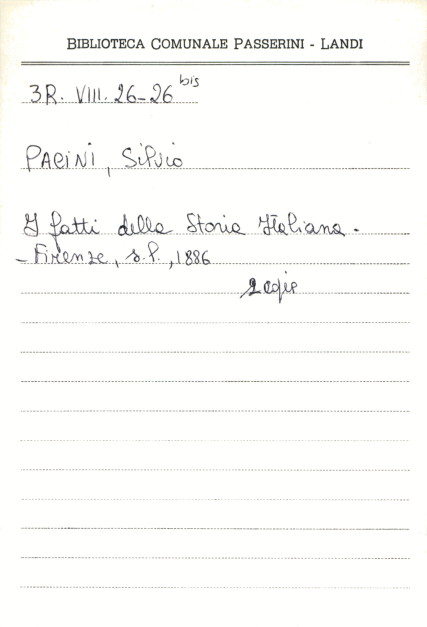 BIBLIOTECA COMUNALE PASSERINI - LANDI
3R. VIII. 26-26 bis
PACINI, Silvio
I fatti della Storia Italiana.
- Firenze, s.l., 1886
2 copie